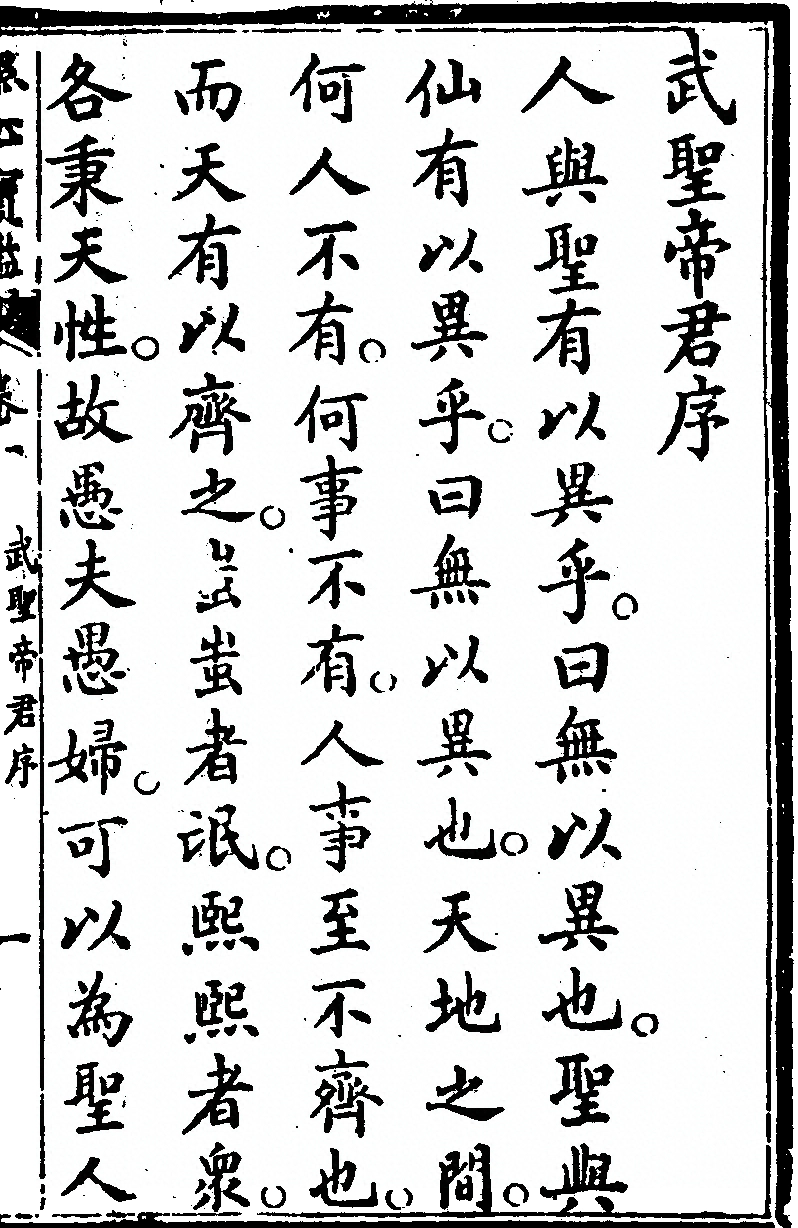 武聖帝君序
人與聖有以異乎。曰無以異也。聖與
仙有以異乎。曰無以異也。天地之間。
何人不有。何事不有。人事至不齊也。
而天有以齊之。蚩蚩者氓。熙熙者衆。
各秉天性。故愚夫愚婦。可以為聖人
卷一
武聖帝君序
一